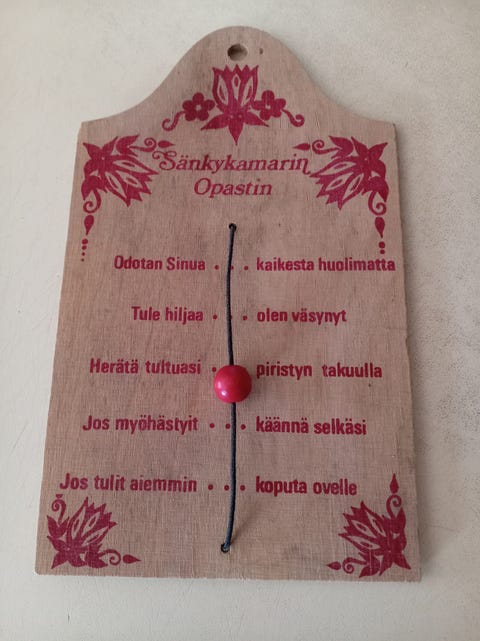 Sänkykamarin
Opastin
Odotan Sinua . . . kaikesta huolimatta
Tule hiljaa . . . olen väsynyt
Herätä tultuasi . piristyn takuulla
Jos myöhästyit . . . käännä selkäsi
Jos tulit aiemmin . . . koputa ovelle